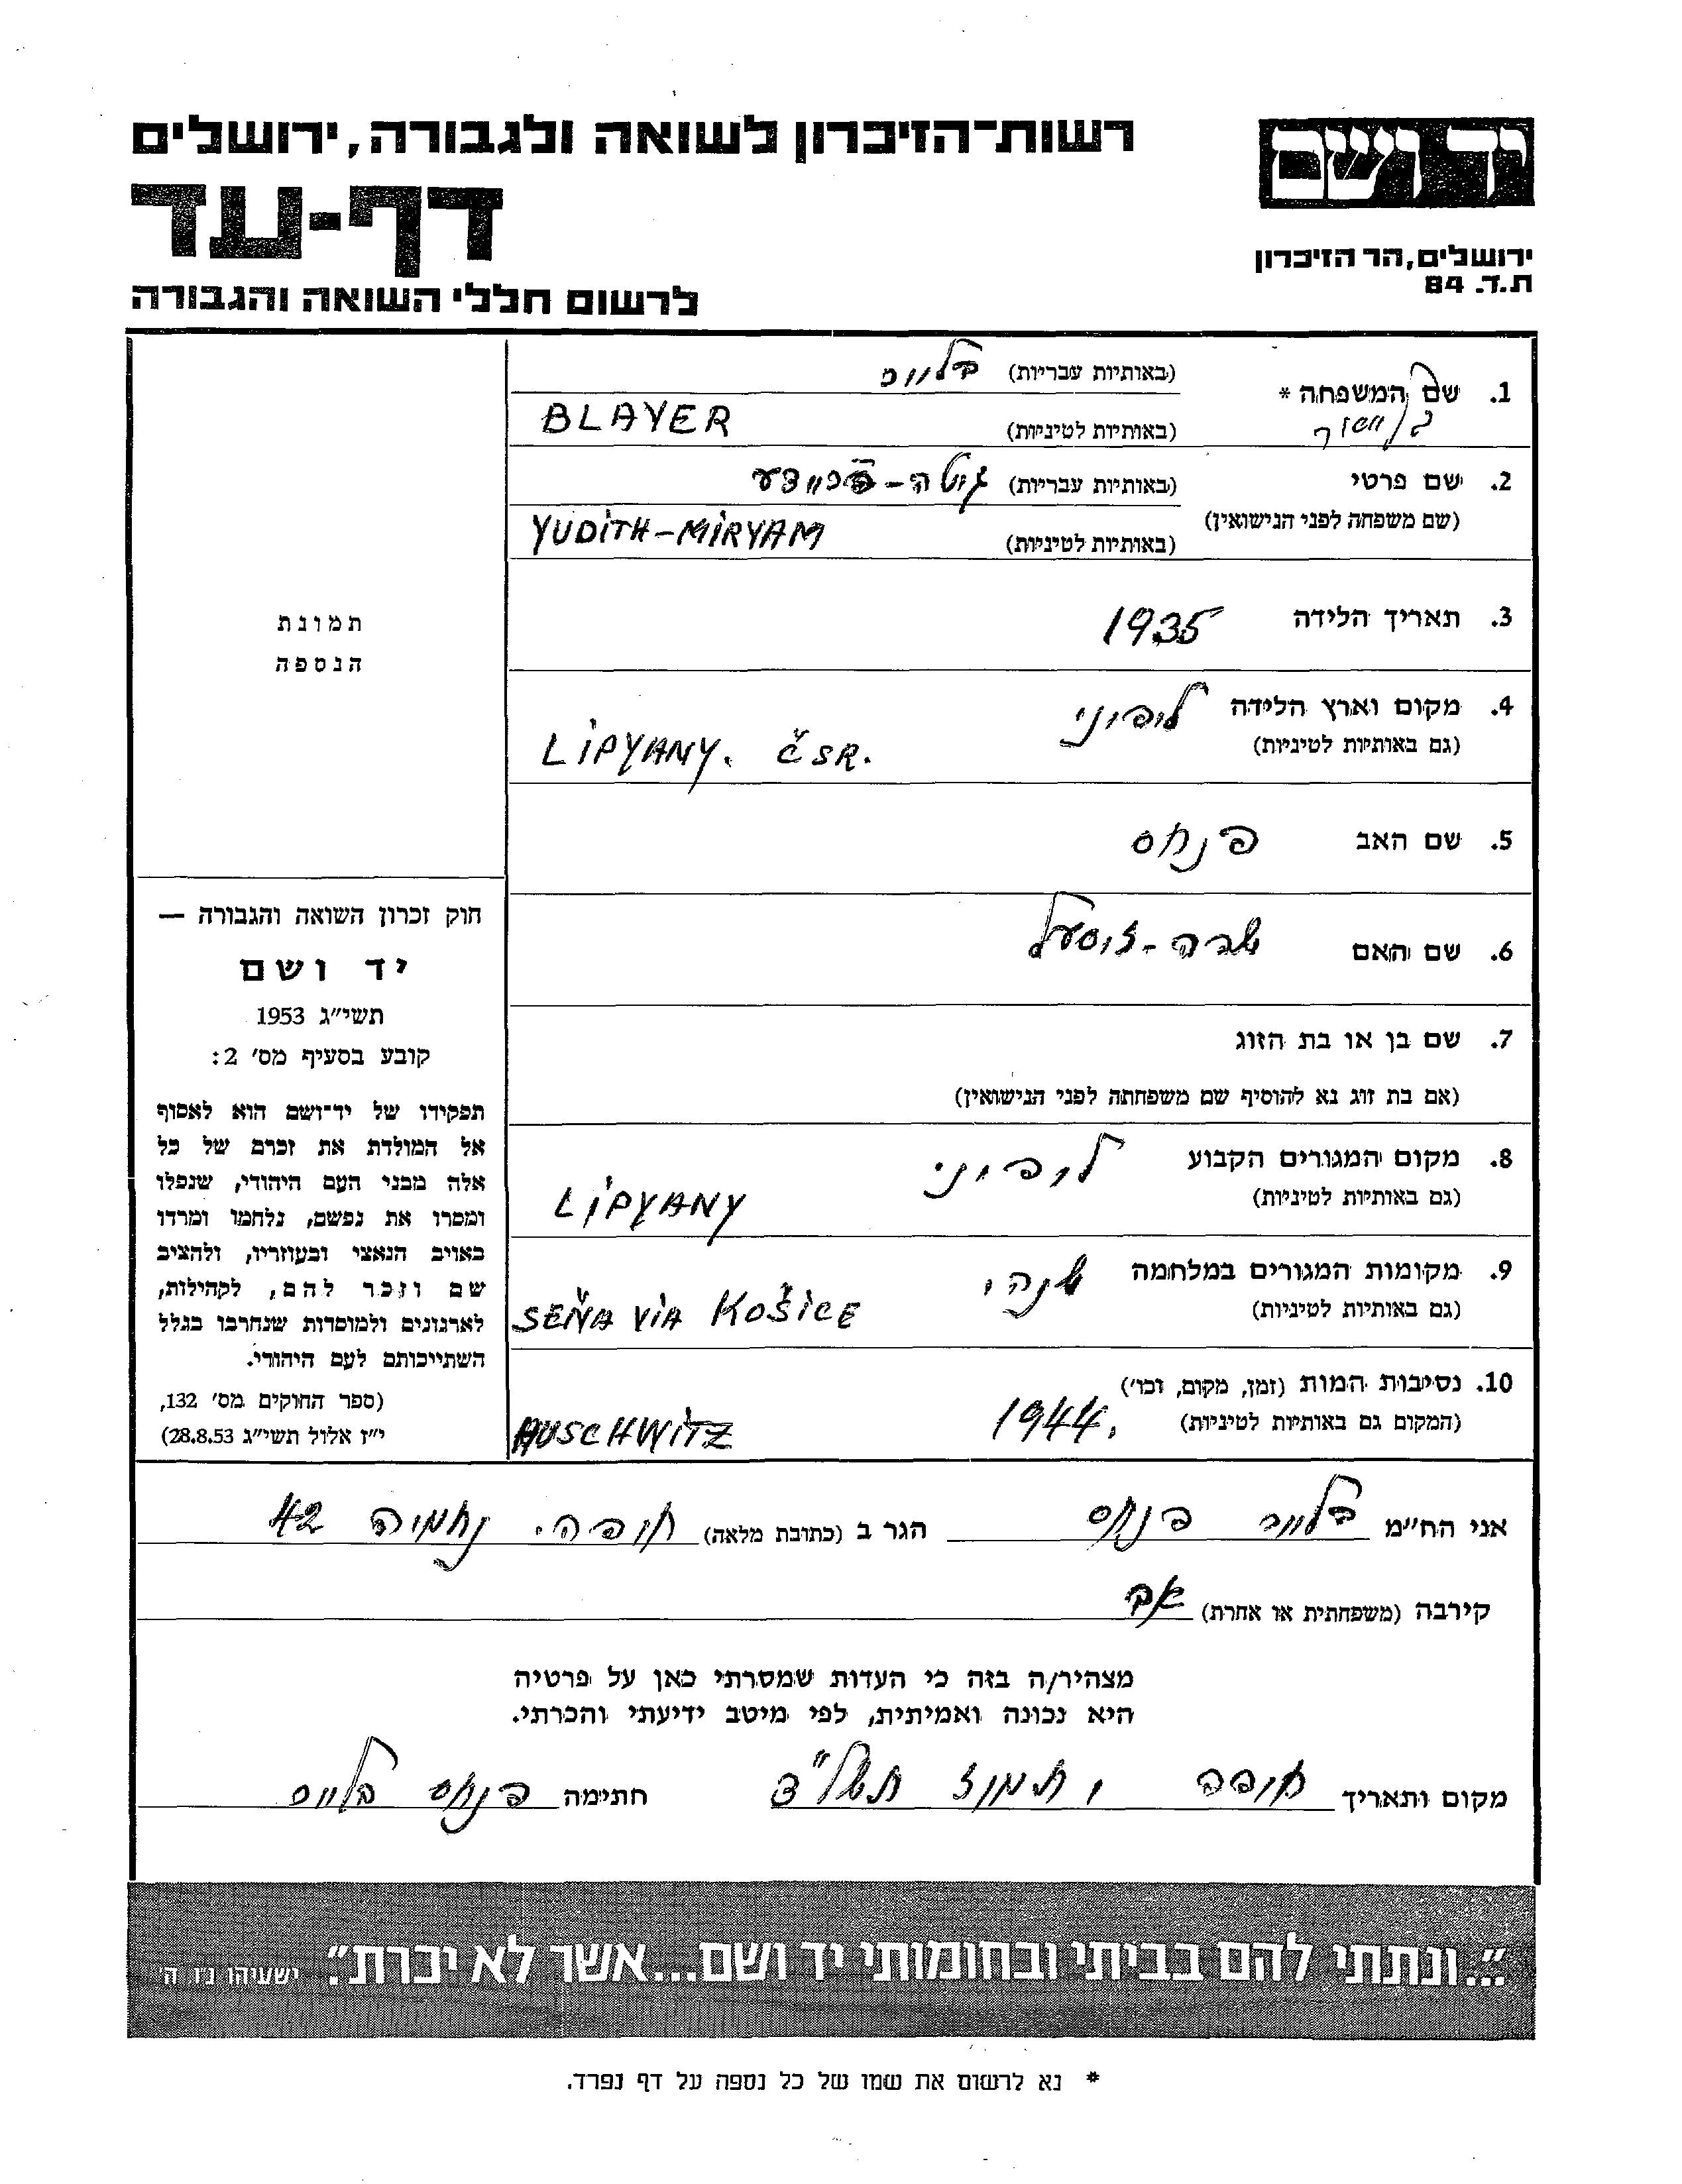 רשות-הזיכרון לשואה ולגבורה, ירושלים
יד ושם
דף-עד
ירושלים, הר הזיכרון
ת.ד. 84
לרשום חללי השואה והגבורה
1. שם המשפחה *
(באותיות עבריות) בלייר
(באותיות לטיניות) BLAYER
2. שם פרטי (באותיות עבריות) גיטה-
(שם משפחה לפני הנישואין)
(באותיות לטיניות) YUDITH-MIRYAM
3. תאריך הלידה 1935
4. מקום וארץ הלידה ליפיוני
(גם באותיות לטיניות) LIPYANY. ČSR.
5. שם האב פנחס
6. שם האם שרה-
7. שם בן או בת הזוג
(אם בת זוג נא להוסיף שם משפחתה לפני הנישואין)
8. מקום המגורים הקבוע ליפיוני
(גם באותיות לטיניות) LIPYANY
9. מקומות המגורים במלחמה
(גם באותיות לטיניות) SEŇA VIA KOŠICE
10. נסיבות המות (זמן, מקום, וכו')
(המקום גם באותיות לטיניות) 1944. AUSCHWITZ
תמונת
הנספה
חוק זכרון השואה והגבורה —
יד ושם
תשי״ג 1953
קובע בסעיף מס׳ 2:
תפקידו של יד־ושם הוא לאסוף
אל המולדת את זכרם של כל
אלה מבני העם היהודי, שנפלו
ומסרו את נפשם, נלחמו ומרדו
באויב הנאצי ובעוזריו, ולהציב
שם וזכר להם, לקהילות,
לארגונים ולמוסדות שנחרבו בגלל
השתייכותם לעם היהודי.
(ספר החוקים מס׳ 132,
י״ז אלול תשי״ג 28.8.53)
אני הח״מ בלייר פנחס הגר ב (כתובת מלאה) נחמיה 42
קירבה (משפחתית או אחרת) אב
מצהיר/ה בזה כי העדות שמסרתי כאן על פרטיה
היא נכונה ואמיתית, לפי מיטב ידיעתי והכרתי.
מקום ותאריך חיפה ו תמוז תשל"ד חתימה פנחס בלייר
"...ונתתי להם בביתי ובחומותי יד ושם...אשר לא יכרת". ישעיהו נ״ו ה׳
* נא לרשום את שמו של כל נספה על דף נפרד.